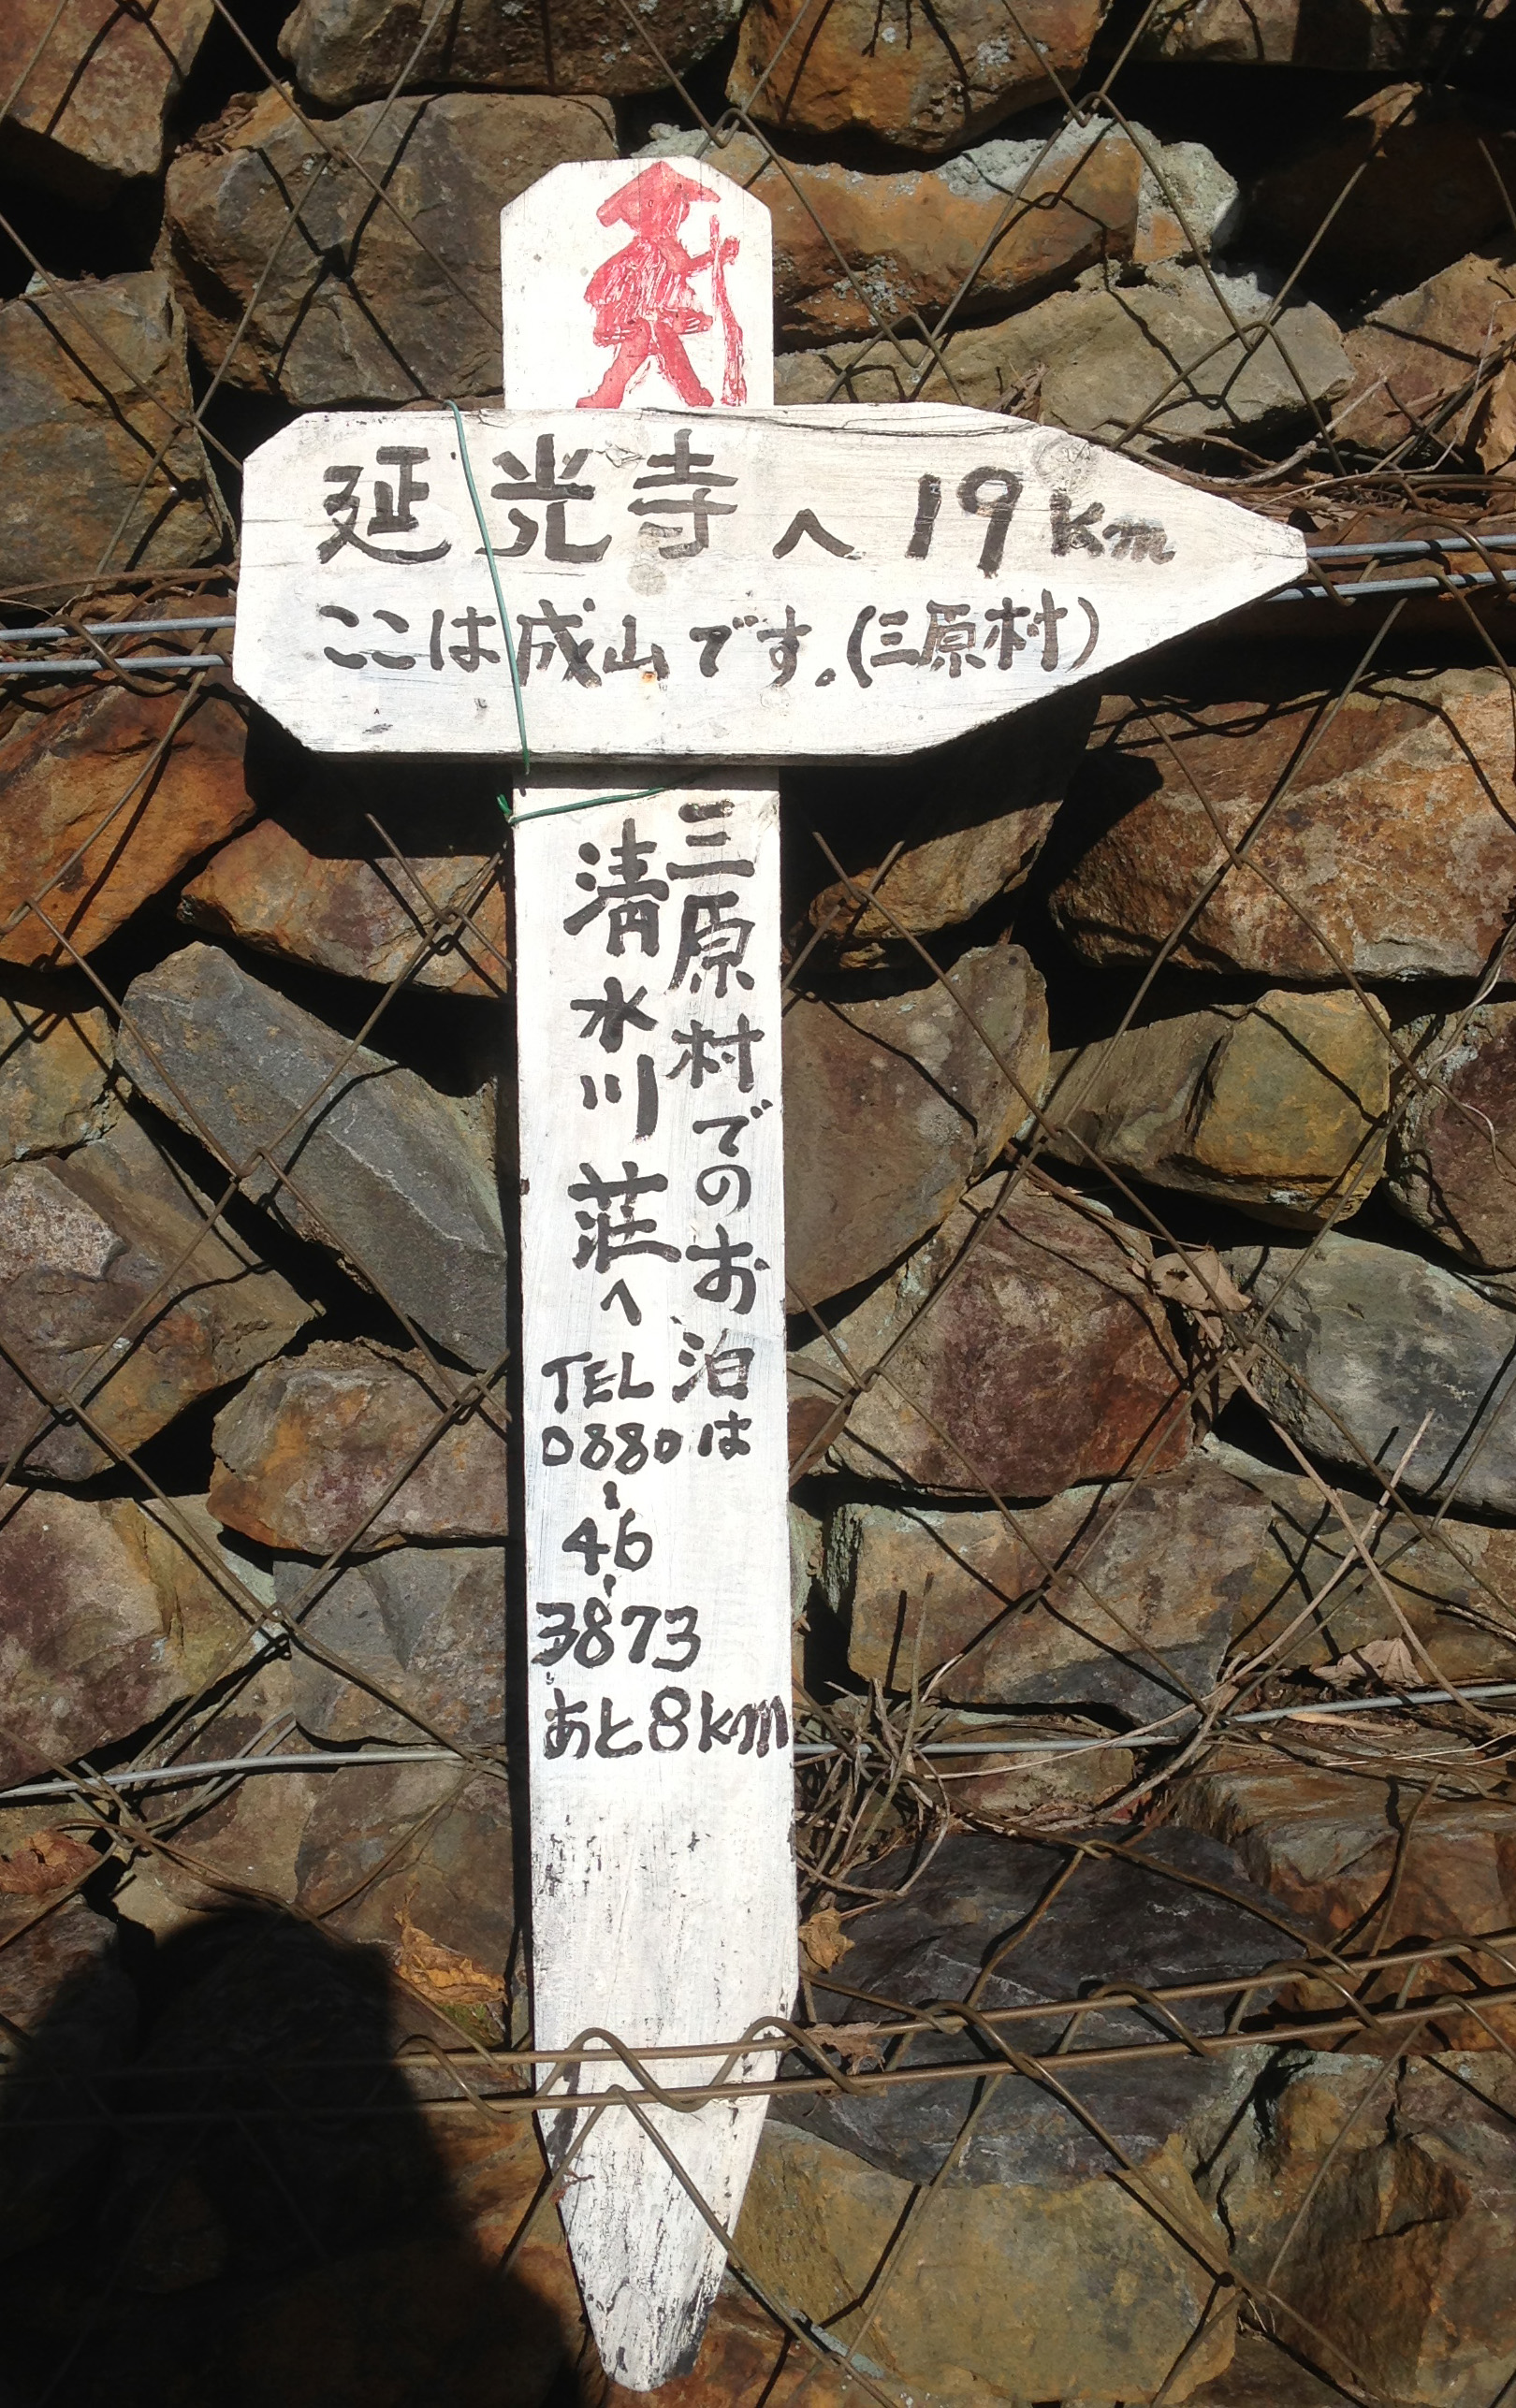 延光寺へ19km
ここは成山です。(三原村)
三原村でのお泊は
清水川荘へ
TEL
0880
-
46
-
3873
あと8km